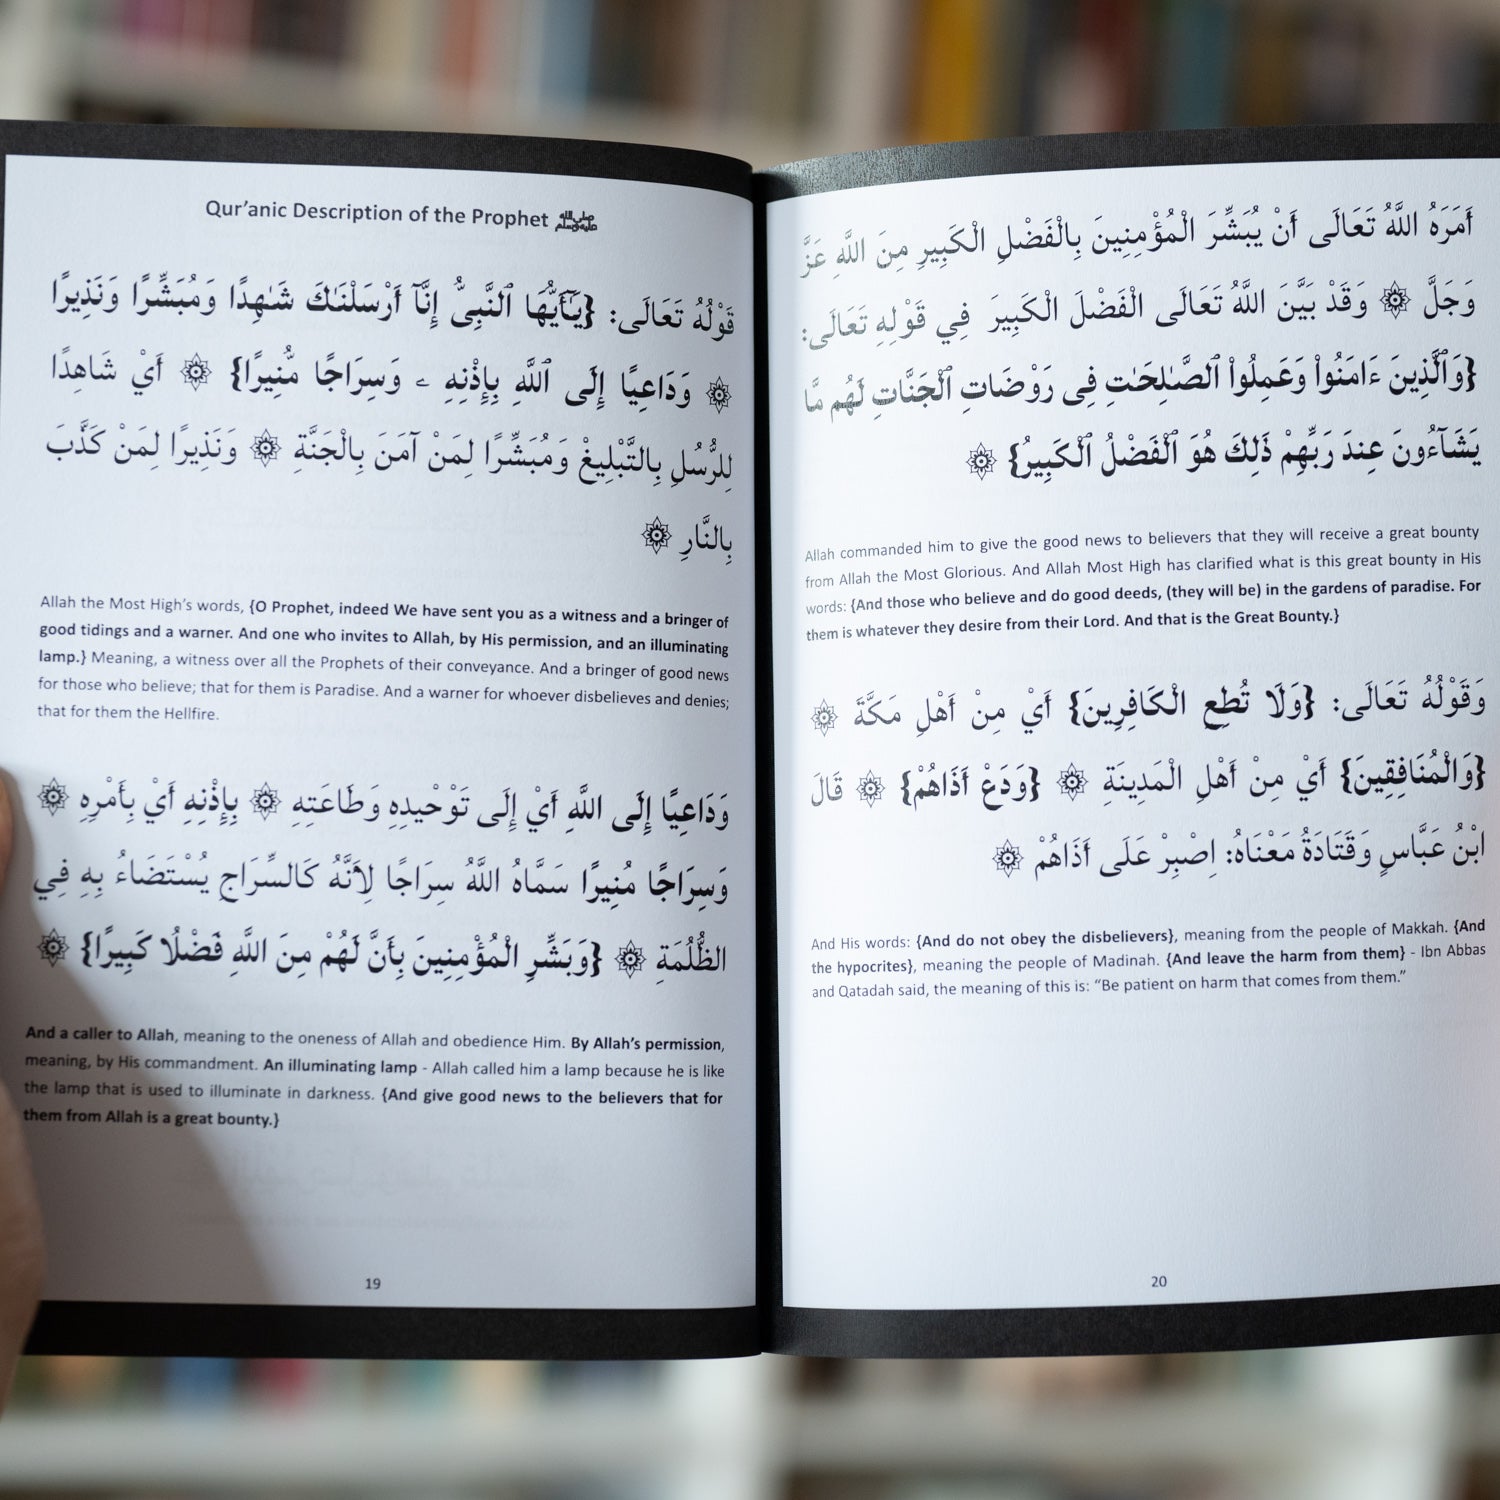 Qur'anic Description of the Prophet ﷺ
قَوْلُهُ تَعَالَى: {يَـٰٓأَيُّهَا ٱلنَّبِىُّ إِنَّآ أَرْسَلْنَـٰكَ شَـٰهِدًا وَمُبَشِّرًا وَنَذِيرًا
۞ وَدَاعِيًا إِلَى ٱللَّهِ بِإِذْنِهِ ۦ وَسِرَاجًا مُّنِيرًا} ۞ أَيْ شَاهِدًا
لِلرُّسُلِ بِالتَّبْلِيغْ وَمُبَشِّرًا لِمَنْ آمَنَ بِالْجَنَّةِ ۞ وَنَذِيرًا لِمَنْ كَذَّبَ
بِالنَّارِ ۞
Allah the Most High's words, {O Prophet, indeed We have sent you as a witness and a bringer of
good tidings and a warner. And one who invites to Allah, by His permission, and an illuminating
lamp.} Meaning, a witness over all the Prophets of their conveyance. And a bringer of good news
for those who believe; that for them is Paradise. And a warner for whoever disbelieves and denies;
that for them the Hellfire.
وَدَاعِيًا إِلَى اللَّهِ أَيْ إِلَى تَوْحْيدِهِ وَطَاعَتِهِ ۞ بِإِذْنِهِ أَيْ بِأَمْرِهِ ۞
وَسِرَاجًا مُنِيرًا سَمَّاهُ اللَّهُ سِرَاجًا لِأَنَّهُ كَالسِّرَاجِ يُسْتَضَاءُ بِهِ فِي
الظُّلُمَةِ ۞ {وَبَشِّرِ الْمُؤْمِنِينَ بِأَنَّ لَهُمْ مِنَ اللَّهِ فَضْلًا كَبِيرًا} ۞
And a caller to Allah, meaning to the oneness of Allah and obedience Him. By Allah's permission,
meaning, by His commandment. An illuminating lamp - Allah called him a lamp because he is like
the lamp that is used to illuminate in darkness. {And give good news to the believers that for
them from Allah is a great bounty.}
19
أَمَرَهُ اللَّهُ تَعَالَى أَنْ يُبَشِّرَ الْمُؤْمِنِينَ بِالْفَضْلِ الْكَبِيرِ مِنَ اللَّهِ عَزَّ
وَجَلَّ ۞ وَقَدْ بَيَّنَ اللَّهُ تَعَالَى الْفَضْلَ الْكَبِيرَ فِي قَوْلِهِ تَعَالَى:
{وَٱلَّذِينَ ءَامَنُوا۟ وَعَمِلُوا۟ ٱلصَّـٰلِحَـٰتِ فِى رَوْضَاتِ ٱلْجَنَّاتِ لَهُم مَّا
يَشَآءُونَ عِندَ رَبِّهِمْ ذَلِكَ هُوَ ٱلْفَضْلُ ٱلْكَبِيرُ} ۞
Allah commanded him to give the good news to believers that they will receive a great bounty
from Allah the Most Glorious. And Allah Most High has clarified what is this great bounty in His
words: {And those who believe and do good deeds, (they will be) in the gardens of paradise. For
them is whatever they desire from their Lord. And that is the Great Bounty.}
وَقَوْلُهُ تَعَالَى: {وَلَا تُطِعِ الْكَافِرِينَ} أَيْ مِنْ أَهْلِ مَكَّةَ ۞
{وَالْمُنَافِقِينَ} أَيْ مِنْ أَهْلِ الْمَدِينَةِ ۞ {وَدَعْ أَذَاهُمْ} ۞ قَالَ
ابْنُ عَبَّاسٍ وَقَتَادَةُ مَعْنَاهُ: اِصْبِرْ عَلَى أَذَاهُمْ ۞
And His words: {And do not obey the disbelievers}, meaning from the people of Makkah. {And
the hypocrites}, meaning the people of Madinah. {And leave the harm from them} - Ibn Abbas
and Qatadah said, the meaning of this is: “Be patient on harm that comes from them.”
20